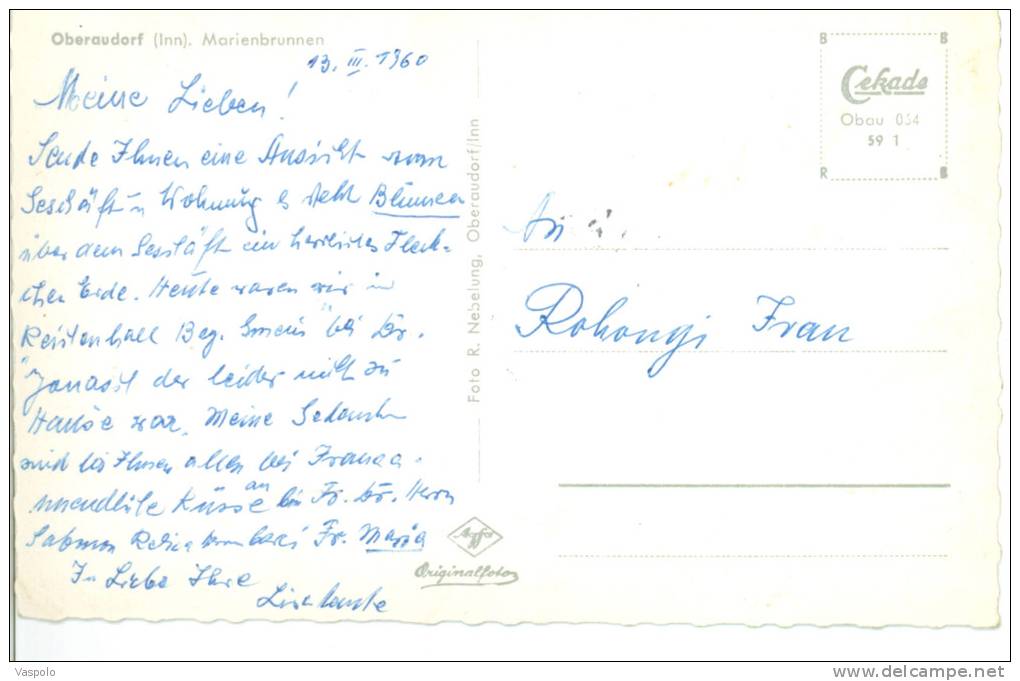 Oberaudorf (Inn). Marienbrunnen
13. III. 1960
Meine Lieben!
Sende Ihnen eine Ansicht vom
Geschäft u Wohnung es steht Blumen
über dem Geschäft ein herrliches Fleck-
chen Erde. Heute waren wir in
Reichenhall bei Dr.
der leider nicht zu
Hause war. Meine Gedanken
sind bei Ihnen allen bei
unendliche Küsse an Fr. Dr. Herrn
Fr. Maria
In Liebe Ihre
Foto R. Nebelung, Oberaudorf/Inn
Agfa
Originalfoto
B B
Cekade
Obau 034
59 1
R B
An
Rohongi Fran
Vaspolo
delcampe.net